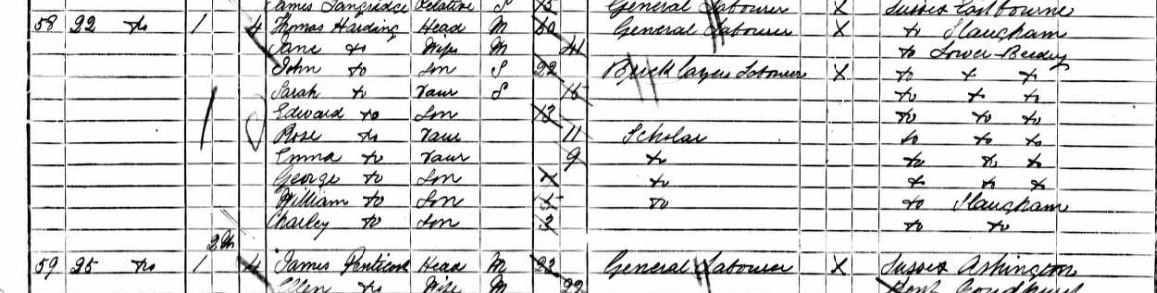 James Langridge Relative S 15 General Labourer X Sussex Eastbourne
58 22 Do 1 4 Thomas Harding Head M 50 General Labourer X Do Slaugham
Jane Do Wife M 41 Do Lower Beeding
John Do Son S 22 Bricklayers Labourer X Do Do Do
Sarah Do Daur S 15 Do Do Do
Edward Do Son 13 Do Do Do
Rose Do Daur 11 Scholar Do Do Do
Emma Do Daur 9 Do Do Do Do
George Do Son Do Do Do Do
William Do Son 5 Do Do Slaugham
Charley Do Son 3 Do Do
59 25 Do 1 4 James Head M 23 General Labourer X Sussex Ashington
Ellen Do Wife M 22 Kent Goudhurst